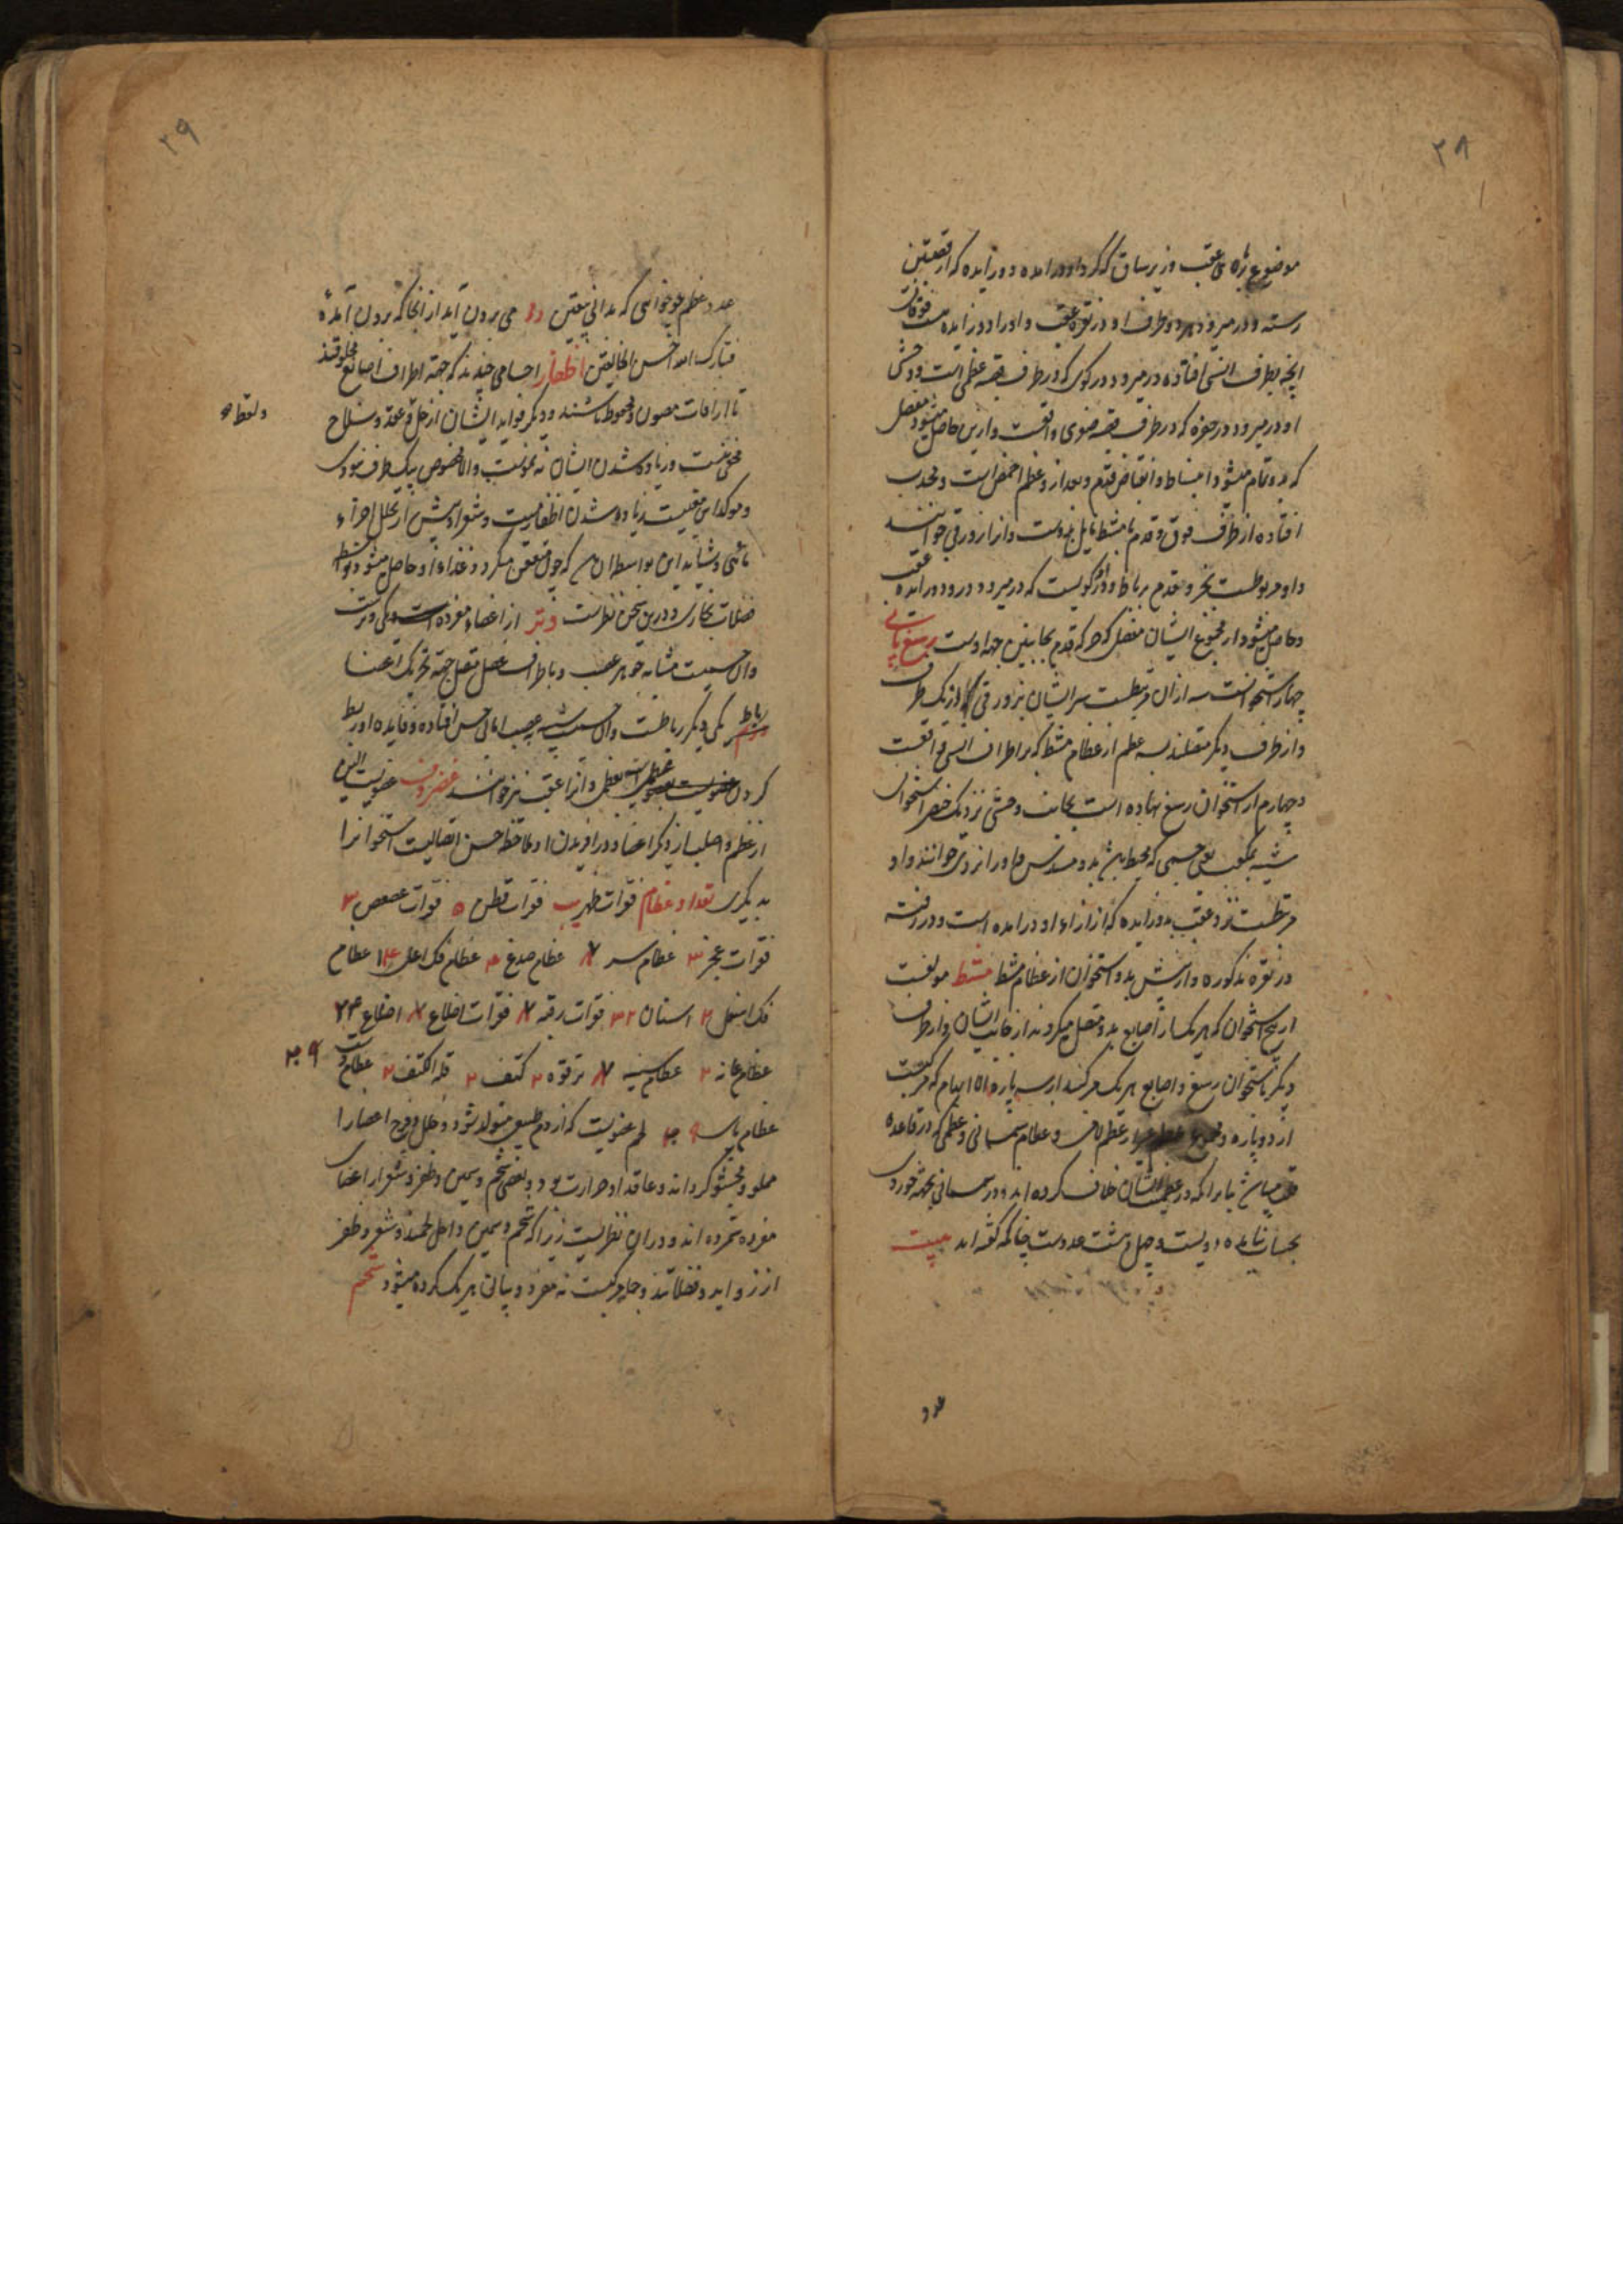 ۲۸
موضوع بالای عقب و زیر ساق که کرد او در آمده دو زایده که از قصبتین
رسته و در میرود هر دو طرف او در نقره عقب و او را دو زایده است فوقانی
آنچه بطرف انسی افتاده در میرود در کوی که در طرف قصبه عظمی است و وحشی
او در میرود در حفره که در طرف قصبه صغری واقعست و از این حاصل میشود مفصل
که بدو تمام میشود انبساط و انقباض قدم و بعد از و عظم اخمص است و محدب
افتاده از طرف فوق و قدم با مشط مایل بدوست و آنرا زورقی خوانند
و او مربوطست بمؤخر و مقدم برباط و او کویست که در میرود درو دو زایده عقب
و حاصل میشود از مجموع ایشان مفصلی که حرکه قدم بجانبین بجهة اوست رسغ پای
چهار استخوانست سه از آن مرتبطست سر ایشان بزورقی از یک طرف
و از طرف دیگر متصلند بسه عظم از عظام مشط که بر اطراف انسی واقعست
و چهارم از استخوان رسغ نهاده است بجانب وحشی نزدیک خنصر استخوانی
شبیه بمکعب یعنی جسمی که محیط باشد بدو مسدس و او را نردی خوانند و او
مرتبطست نزد عقب بدو زایده که از ازاء او در آمده است و در رفته
در نقره مذکوره و از پیش بدو استخوان از عظام مشط مشط مولفست
از پنج استخوان که هر یک از اصابع بدو متصل میکردند از جانب ایشان و از طرف
دیگر باستخوان رسغ و اصابع هر یک مرکبند از سه پاره الا ابهام که مرکبست
از دو پاره و مجموع عظام غیر از عظم لامی و عظام سمسمانی و عظمی که در قاعده
قلب میباشد بنا بر آنکه در عظمیت ایشان خلاف کرده اند و در سمسمانی بجهة خوردی
بحساب نیامده دویست و چهل و هشت عددست چنانکه گفته اند بیت
عدد
۲۹
عدد عظم چو خواهی که بدانی بیقین رو می برون آید از آنجا که برون آمدهٔ
فتبارک الله احسن الخالقین اظفار اجسامی چندند که بجهة اطراف اصابع مخلوقند
تا از آفات مصون و محفوظ باشند و دیگر فواید ایشان از حل و عقد و سلاح
ولقط
مخفی نیست و زیاده شدن ایشان نه بنموست والا مخصوص بیک طرف نبودی
و مؤکد این معنیست زیاده شدن اظفار میت و شعر او پیش از تحلل اجزاء
از اعضاء مفرده است یکی وترست
و آن جسمیست مشابه جوهر عصب و باطراف عضل متصل بجهة تحریک اعضا
رباط یکی دیگر رباطست و آن جسمیست شبیه بعصب اما بی حس افتاده و فایده او ربط
کردن عظمیست بعظمی و آنرا عقب نیز خوانند غضروف عضویست الین
از عظم و اصلب از دیگر اعضا و در آفریدن او ملاحظه حسن اتصالیست استخوانرا
به دیگری تعداد عظام فقرات ظهر ۱۲ فقرات قطن ۵ فقرات عصعص ۳
فقرات عجز ۳ عظام سر ۷ عظام صدغ ۴ عظام فک اعلی ۱۴ عظام
فک اسفل ۲ اسنان ۳۲ فقرات رقبه ۷ فقرات اضلاع ۷ اضلاع ۲۴
عظام عانه ۲ عظام سینه ۷ ترقوه ۲ کتف ۲ قلة الکتف ۲ عظام دست
عظام پای لحم عضویست که از دم طبیعی متولد شود و خلل و فرج اعضا را
مملو و محشو گرداند و عاقد او حرارت بود و بعضی شحم و سمین و ظفر و شعر از اعضای
مفرده شمرده اند و در آن نظریست زیرا که شحم و سمین داخل لحمند و شعر و ظفر
از زواید و فضلاتند و جلد مرکبست نه مفرد و بیان هر یک کرده میشود شحم